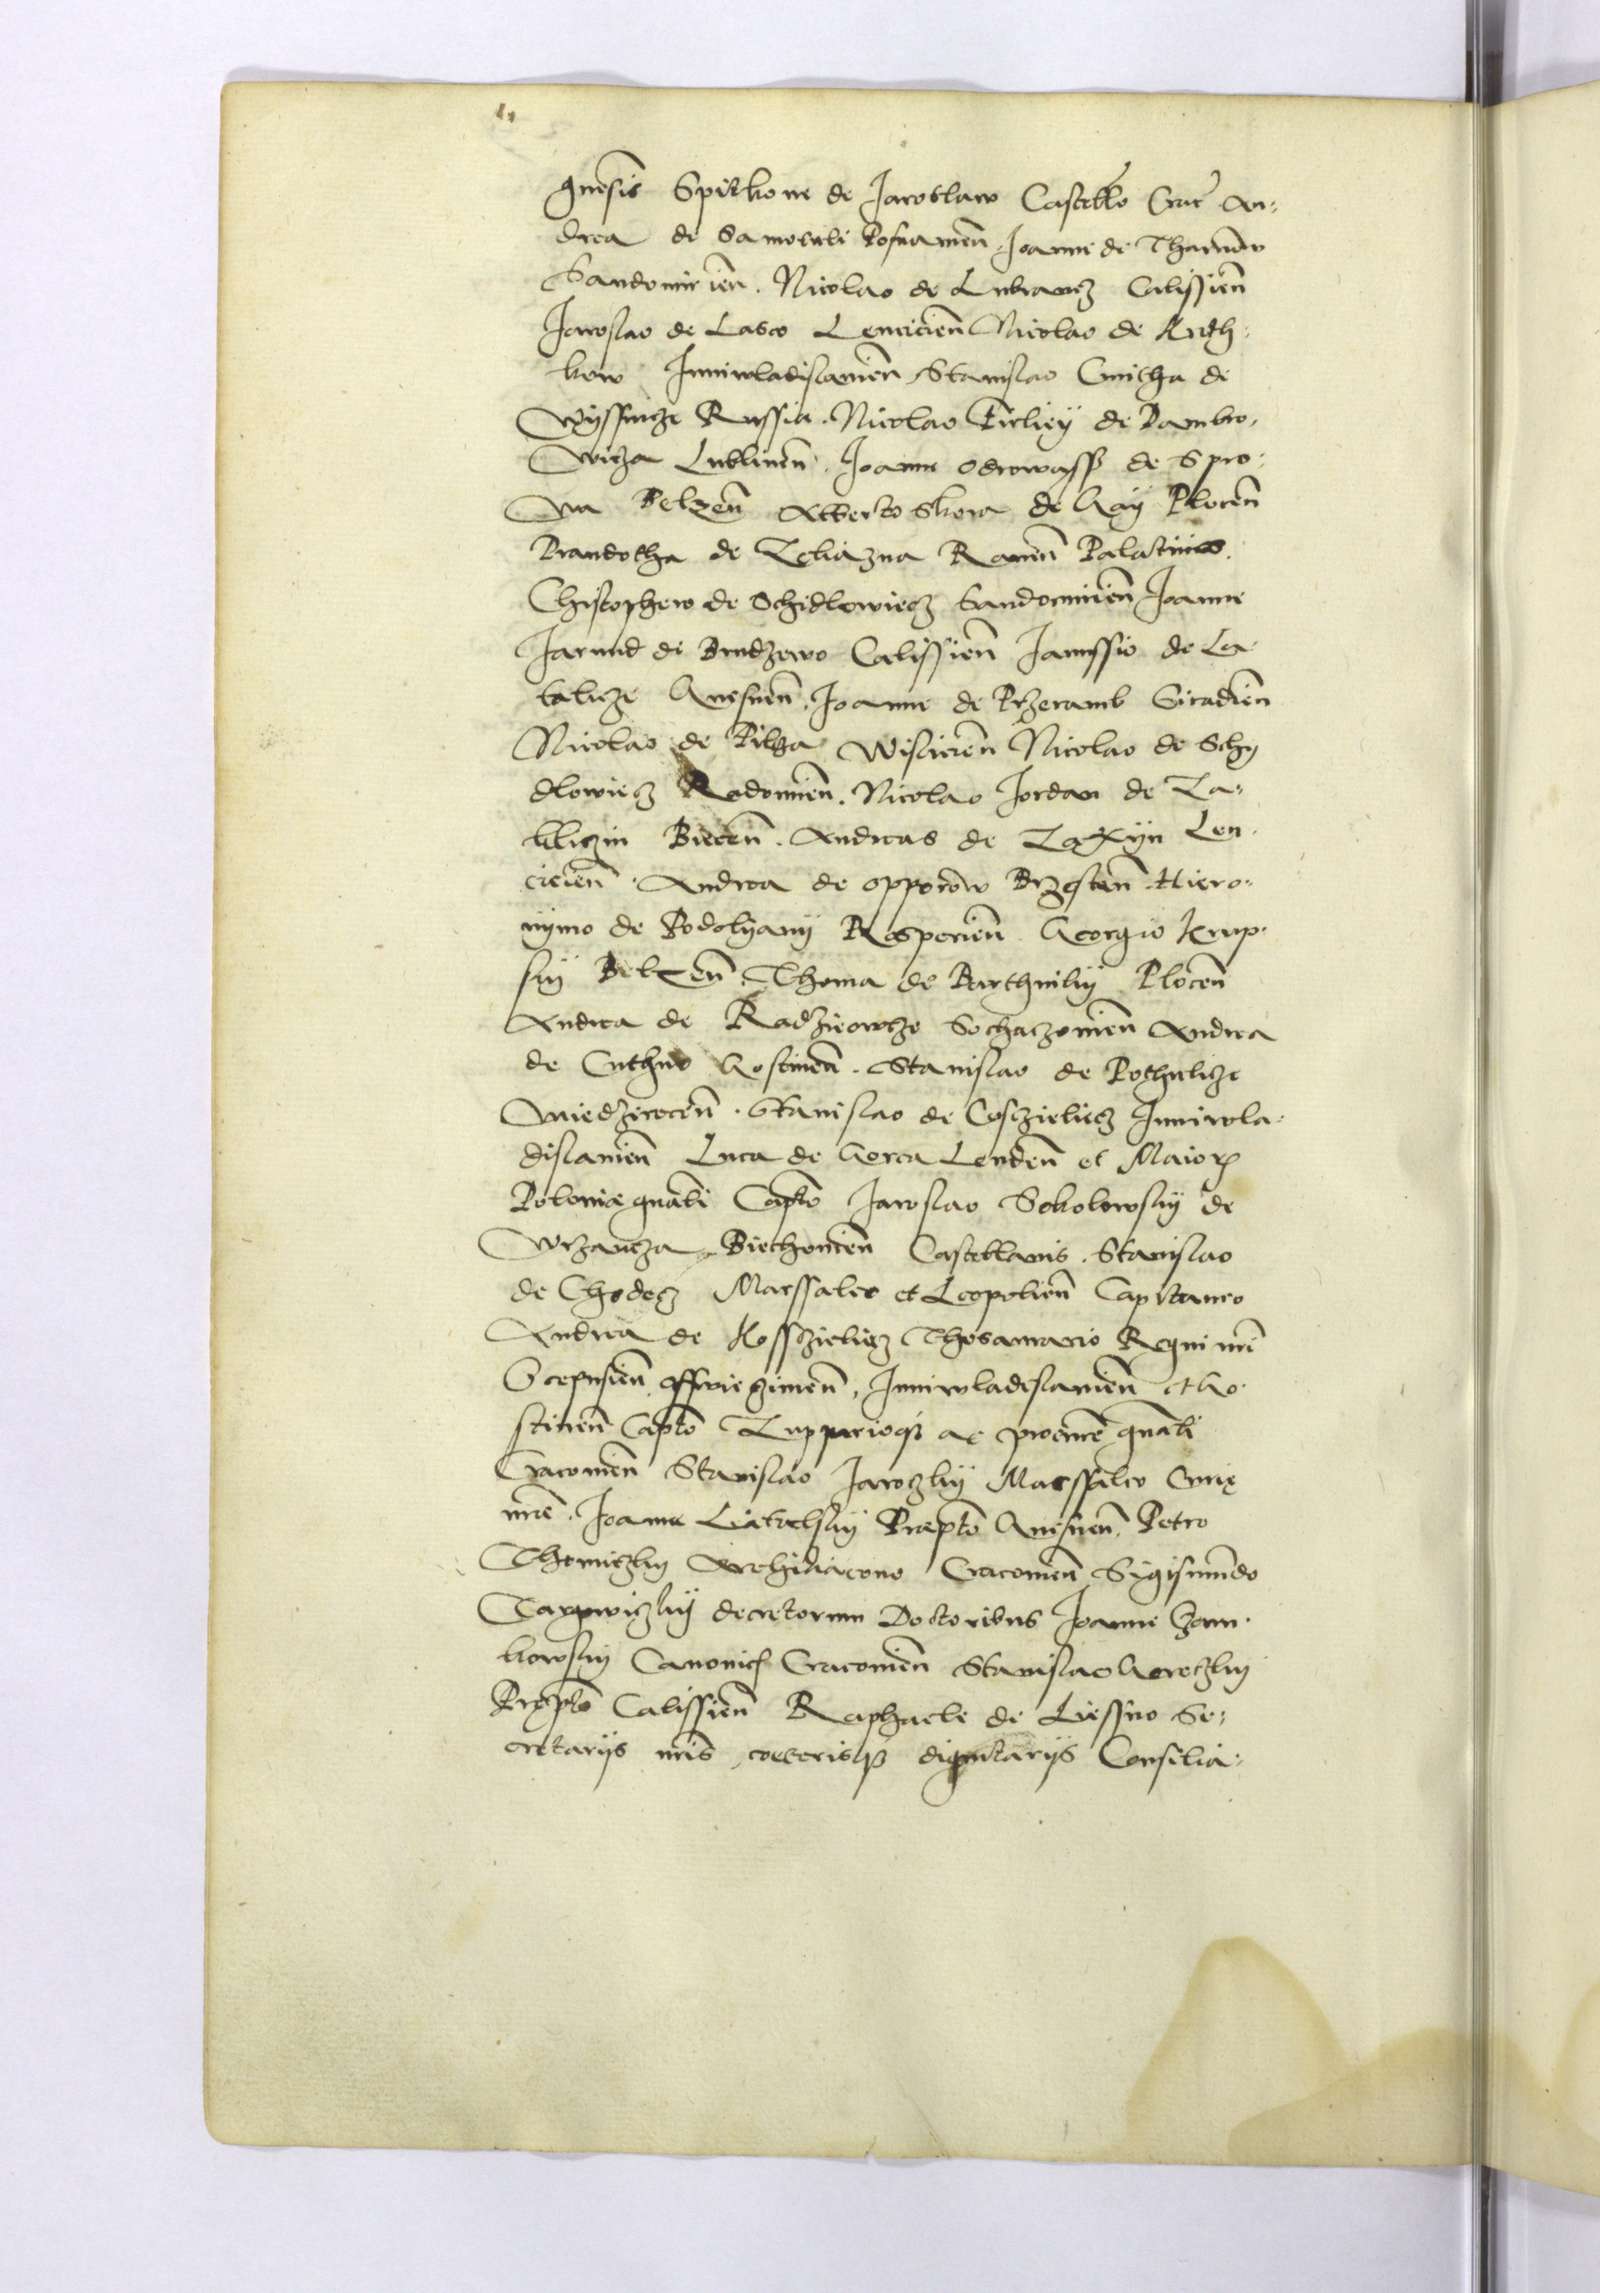 gnesis Spitkone de Jaroslaw Castello Crac̄ An:
drea de Samotuli Posnanien̄. Joanne de Tharnow
Sandomirien̄. Nicolao de Lubrancz Calissien̄
Jaroslao de Lasco Lenricien̄ Nicolao de Kreth:
kow Juniwladislavien̄ Stanislao Cmitha de
Wyssnicze Russia. Nicolao Firliey de Dambro:
wicza Lublinen̄. Joanne Odrowassz de Spro:
wa Belzen̄ Alberto Skora de Gay Plocen̄
Prandotha de Zeliazna Raven̄ Palatinis.
Christophero de Schidlowiecz Sandomirien̄ Joanne
Jarand de Brudzewo Calissien̄ Janussio de La
taliczе Gnesnen̄. Joanne de Przeramb Siradien̄
Nicolao de Pilza Wislicien̄ Nicolao de Schy
dlowiecz Radomien̄. Nicolao Jordan de Za:
kliczin Biecen̄. Andreas de Zaxyn Len:
cicien̄. Andrea de Opporow Brzesten̄ Hiero:
nymo de Podolyany Rosperien̄. Georgio Krup:
sky Belzen̄ Thoma de Barthniky Plocen̄
Andrea de Radzieowcze Sochaczovien̄ Andrea
de Cuthno Gostinen̄. Stanislao de Pothulicze
Miedzirecen̄. Stanislao de Coszcieliecz Juniwla:
dislavien̄ Luca de Gorca Lenden̄ et Maioꝝ
Poloniae gn̄ali Capt̄o Jaroslao Sokolowsky de
Wrzancza Biechovien̄ Castellanis. Stanislao
de Chodecz Marssalco et Leopolien̄ Capitaneo
Andrea de Kosszcielecz Thesaurario Regni nr̄i
Scepusien̄ Osswiezimen̄, Juniwladislavien̄ et Go:
stinen̄ Capt̄o Zupparioqȝ ac procure gn̄ali
Cracovien̄ Stanislao Jaroczky Marssalco Curię
nr̄e. Joanne Latalsky Praept̄o Gnesnen̄. Petro
Thomiczky Archidiacono Cracovien̄ Sigismundo
Targowiczky decretorum Doctoribus Joanne Zam:
kowsky Canonico Cracovien̄ Stanislao Goreczky
Praept̄o Calissien̄ Raphaele de Liessno Se:
cretarijs nr̄is, coeterisqȝ dignitarijs Consilia: